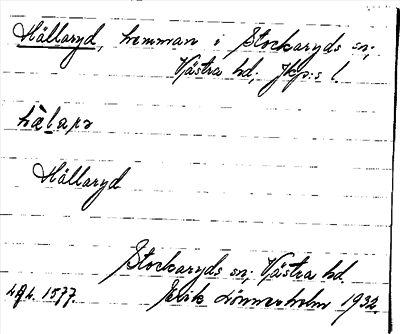 Hällaryd, hemman i Stockaryds sn;
Västra hd; Jkp:s l.
Hällaryd
Stockaryds sn; Västra hd.
Erik Lönnerholm 1932.